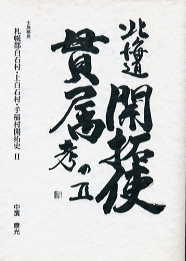 北海道
開拓使
貫属考
の五
札幌郡白石村・上白石村・手稲村開拓史 II
中濱 康光